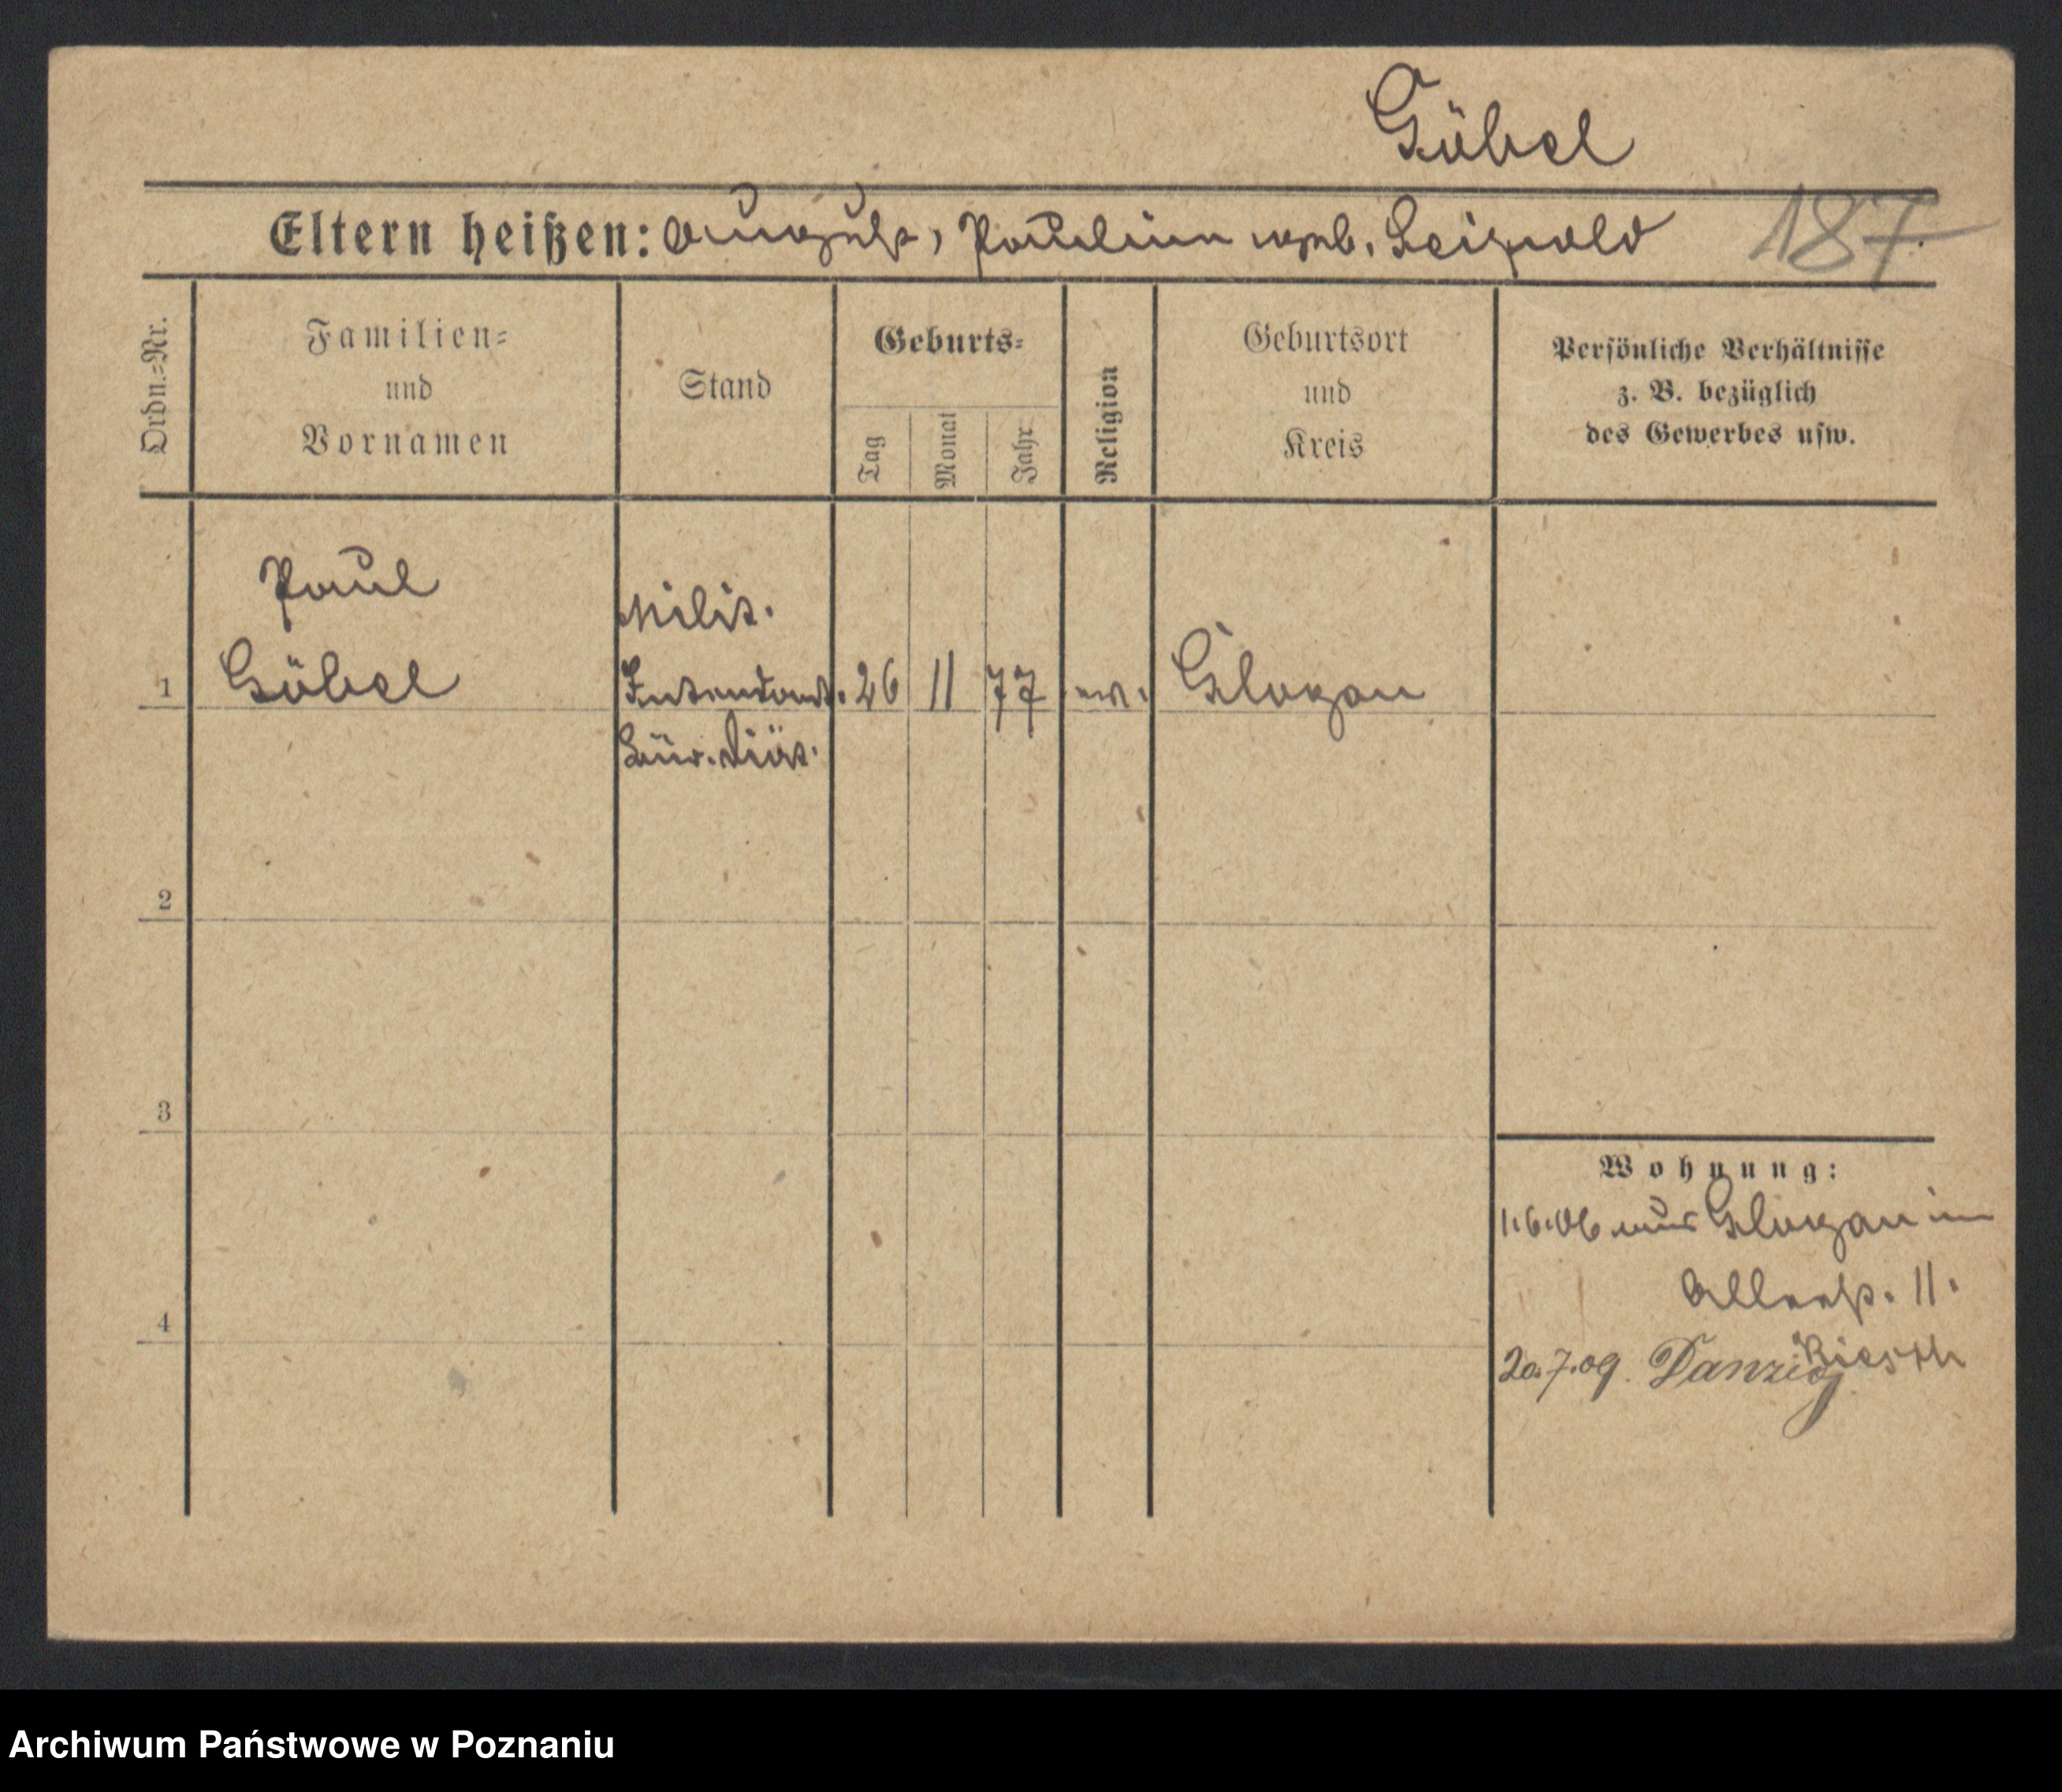 Göbel
Eltern heißen: August, Pauline geb. Leipold 187
Ordn.-Nr.
Familien-
und
Vornamen
Stand
Geburts-
Tag
Monat
Jahr
Religion
Geburtsort
und
Kreis
Persönliche Verhältnisse
z. B. bezüglich
des Gewerbes usw.
Paul
Milit.
1 Göbel Intendant. 26 11 77 ev. Glogau
Bür. Diät.
2
3
4
Wohnung:
1.6.06 aus Glogau in
Allerst. 11.
20.7.09. Danzig
Archiwum Państwowe w Poznaniu